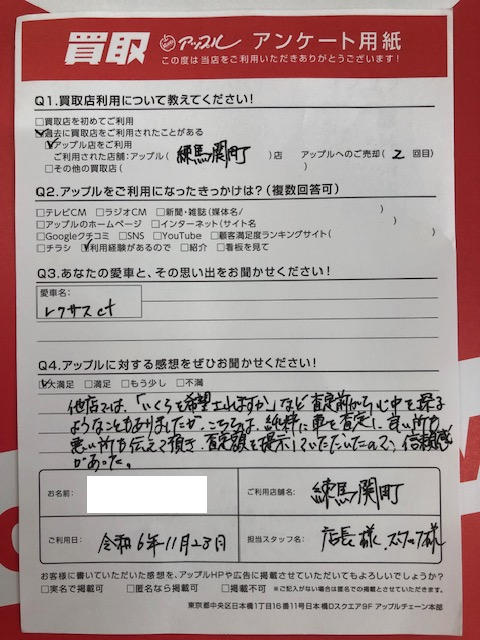 買取 アップル アンケート用紙
この度は当店をご利用いただきありがとうございます!
Q1.買取店利用について教えてください!
□買取店を初めてご利用
☑過去に買取店をご利用されたことがある
☑アップル店をご利用
ご利用された店舗:アップル( 練馬関町 )店 アップルへのご売却( 2 回目)
□その他の買取店( )
Q2.アップルをご利用になったきっかけは?(複数回答可)
□テレビCM □ラジオCM □新聞・雑誌(媒体名/ )
□アップルのホームページ □インターネット(サイト名 )
□Googleクチコミ □SNS □YouTube □顧客満足度ランキングサイト( )
□チラシ ☑利用経験があるので □紹介 □看板を見て
Q3.あなたの愛車と、その思い出をお聞かせください!
愛車名:
レクサスct
Q4.アップルに対する感想をぜひお聞かせください!
☑大満足 □満足 □もう少し □不満
他店では、「いくらを希望されますか」など査定前から心中を探る
ようなこともありましたが、こちらでは、純粋に車を査定し、良い所も
悪い所も伝えて頂き、査定額を提示していただいたので、信頼感
があった。
お名前: ご利用店舗名: 練馬関町
ご利用日: 令和6年11月23日 担当スタッフ名: 店長様、スタッフ様
お客様に書いていただいた感想を、アップルHPや広告に掲載させていただいてもよろしいでしょうか?
□実名で掲載可 □匿名なら掲載可 □掲載不可 ※ご記入がない場合は匿名での掲載とさせていただきます。
東京都中央区日本橋1丁目16番11号日本橋Dスクエア9F アップルチェーン本部